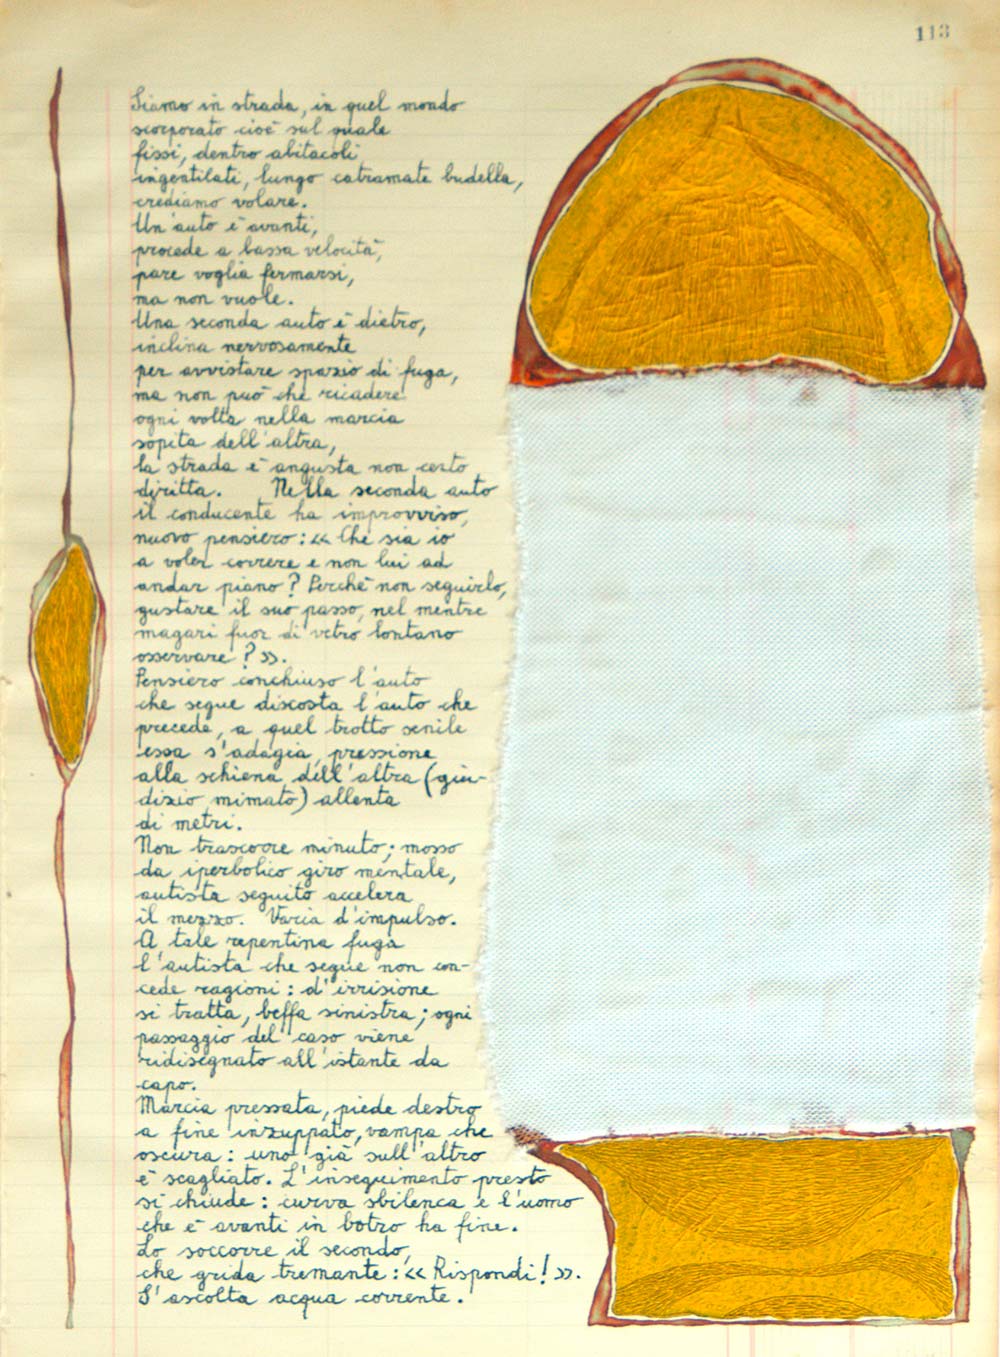 113
Siamo in strada, in quel mondo
scorporato cioè sul quale
fissi, dentro abitacoli
ingentiliti, lungo catramate budella,
crediamo volare.
Un'auto è avanti,
procede a bassa velocità,
pare voglia fermarsi,
ma non vuole.
Una seconda auto è dietro,
inclina nervosamente
per avvistare spazio di fuga,
ma non può che ricadere
ogni volta nella marcia
sopita dell'altra,
la strada è angusta non certo
diritta. Nella seconda auto
il conducente ha improvviso,
nuovo pensiero: << Che sia io
a voler correre e non lui ad
andar piano? Perchè non seguirlo,
gustare il suo passo, nel mentre
magari fuor di vetro lontano
osservare? >>.
Pensiero conchiuso l'auto
che segue discosta l'auto che
precede, a quel trotto senile
essa s'adagia, pressione
alla schiena dell'altra (giu-
dizio mimato) allenta
di metri.
Non trascorre minuto; mosso
da iperbolico giro mentale,
autista seguito accelera
il mezzo. Varia d'impulso.
A tale repentina fuga
l'autista che segue non con-
cede ragioni: d'irrisione
si tratta, beffa sinistra; ogni
passaggio del caso viene
ridisegnato all'istante da
capo.
Marcia pressata, piede destro
a fine inzuppato, vampa che
oscura: uno già sull'altro
è scagliato. L'inseguimento presto
si chiude: curva sbilenca e l'uomo
che è avanti in botro ha fine.
Lo soccorre il secondo,
che grida tremante: << Rispondi! >>.
S'ascolta acqua corrente.